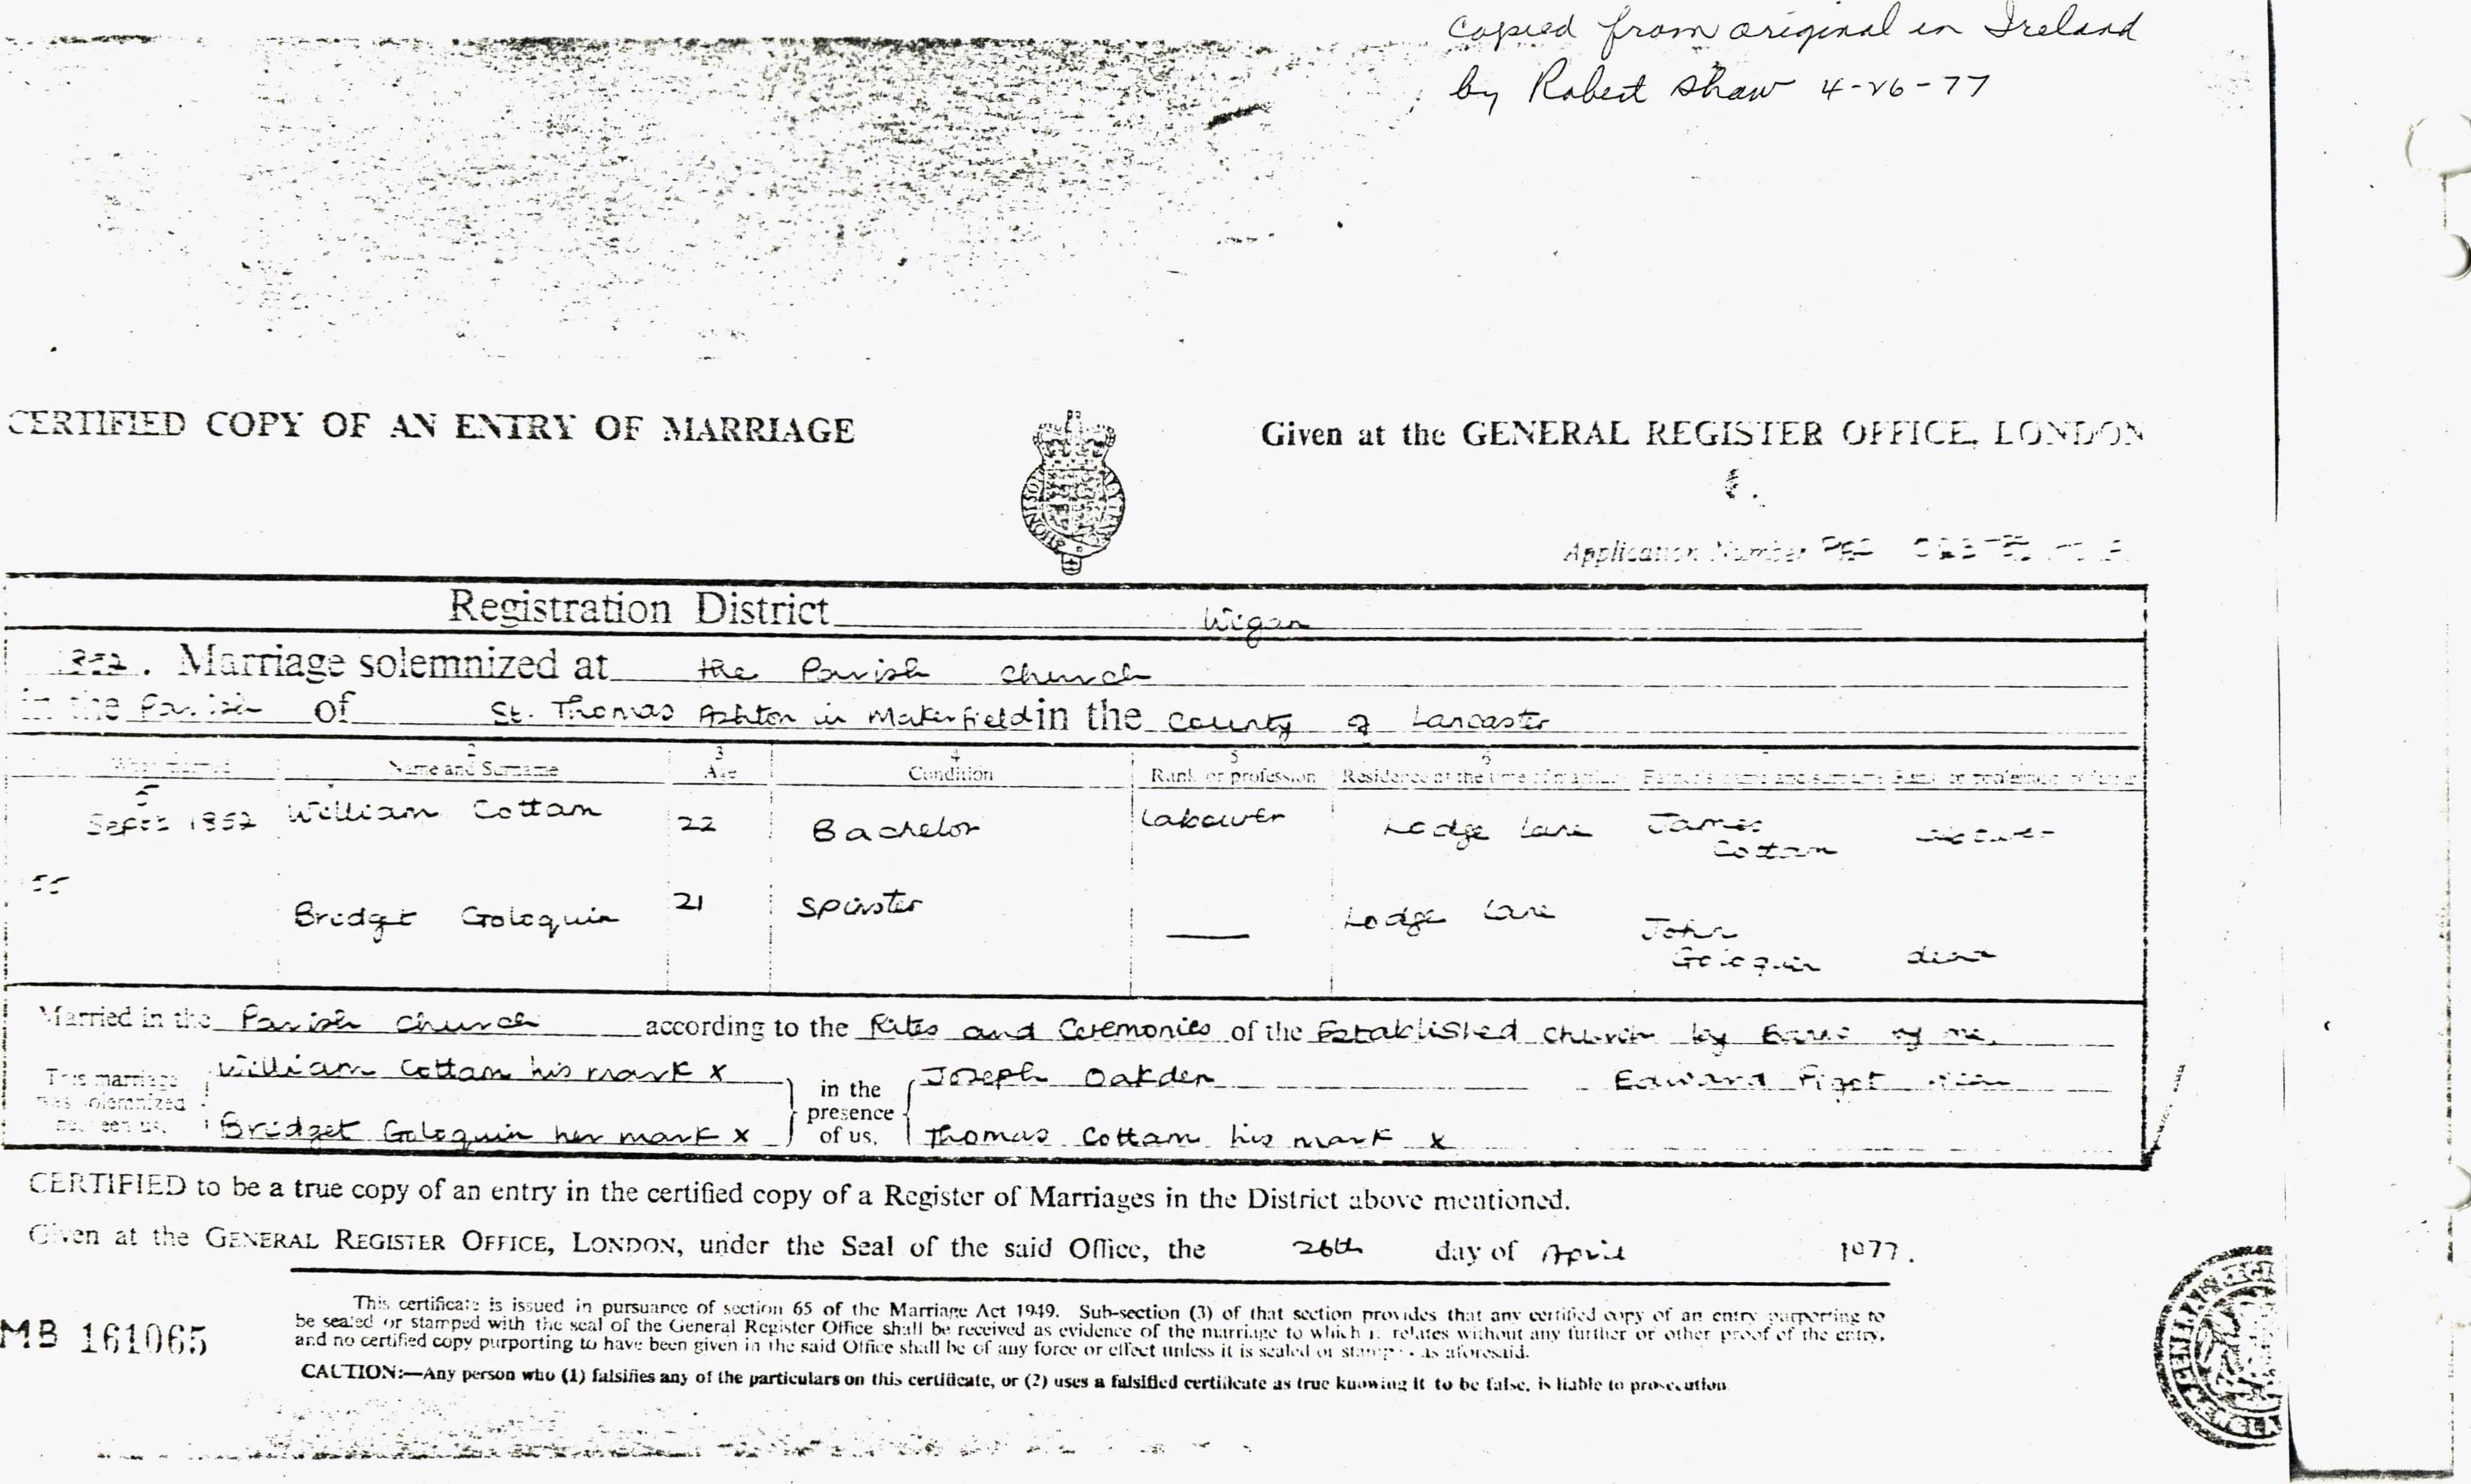 Copied from original in Ireland
by Robert Shaw 4-26-77
CERTIFIED COPY OF AN ENTRY OF MARRIAGE
Given at the GENERAL REGISTER OFFICE, LONDON
Application Number
Registration District Wigan
1852. Marriage solemnized at the Parish Church
in the Parish of St. Thomas Ashton in Makerfield in the County of Lancaster
When married Name and Surname Age Condition Rank or profession Residence at the time of marriage Father's name and surname Rank or profession of father
2 3 4 5 6
5 Septr 1852 William Cottam 22 Bachelor Labourer Lodge Lane James Cottam Labourer
55
Bridget Goloquin 21 Spinster — Lodge Lane John Goloquin dead
Married in the Parish Church according to the Rites and Ceremonies of the Established Church by Banns by me,
This marriage was solemnized between us, William Cottam his mark x in the presence of us, Joseph Oakden Edward Pigot
Bridget Goloquin her mark x Thomas Cottam his mark x
CERTIFIED to be a true copy of an entry in the certified copy of a Register of Marriages in the District above mentioned.
Given at the GENERAL REGISTER OFFICE, LONDON, under the Seal of the said Office, the 26th day of April 1977.
MB 161065
This certificate is issued in pursuance of section 65 of the Marriage Act 1949. Sub-section (3) of that section provides that any certified copy of an entry purporting to
be sealed or stamped with the seal of the General Register Office shall be received as evidence of the marriage to which it relates without any further or other proof of the entry,
and no certified copy purporting to have been given in the said Office shall be of any force or effect unless it is sealed or stamped as aforesaid.
CAUTION:—Any person who (1) falsifies any of the particulars on this certificate, or (2) uses a falsified certificate as true knowing it to be false, is liable to prosecution.